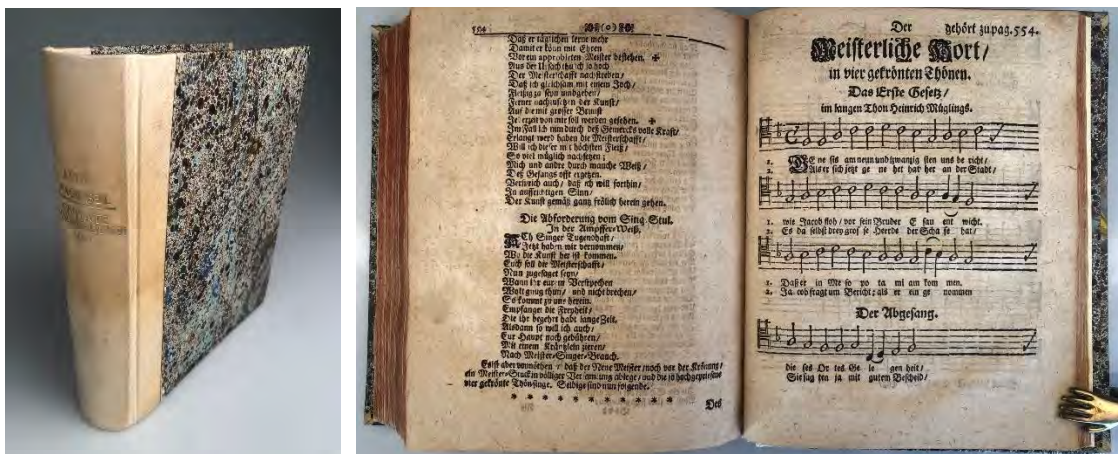 554
Daß er täglichen lerne mehr
Damit er könn mit Ehren
Vor ein approbirten Meister bestehen. ✠
Aus der Ursach thu ich ja hoch
Der Meisterschafft nachstreben/
Daß ich gleichsam mit einem Joch/
Fleißig zu seyn umbgeben/
Ferner nachzusetzen der Kunst/
Auf die mit grosser Brunst
Jederzeit von mir soll werden gesehen. ✠
Im Fall ich nun durch deß Gemercks volle Krafft/
Erlangt werd haben die Meisterschafft/
Will ich dieser mit höchsten Fleiß/
So viel müglich nachsetzen;
Mich und andre durch manche Weiß/
Deß Gesangs offt ergetzen.
Verheiß auch/ daß ich will forthin/
In auffrichtigen Sinn/
Der Kunst gemäß ganz frölich herein gehen.
Die Abforderung vom Sing-Stul.
In der Ampffer-Weiß.
ACh Singer Tugendhafft/
Jetzt haben wir vernommen/
Wo die Kunst her ist kommen.
Euch soll die Meisterschafft/
Nun zugesaget seyn/
Wann ihr eurem Versprechen
Wolt gnug thun/ und nicht brechen/
So kommt zu uns herein.
Empfanget die Freyheit/
Die ihr begehrt habt lange Zeit.
Alsdann so will ich auch/
Eur Haupt noch gebühren/
Mit einem Kräntzlein zieren/
Nach Meister-Singer-Brauch.
Es ist aber vonnöthen/ daß der Neue Meister/ noch vor der Krönung/
ein Meister-Stuck in völliger Versammlung ablege/ und die so hochgepriesene
vier gekrönte Thön singe. Selbige sind nun folgende.
* * * * * * * * * * * *
Des
Der gehört zu pag. 554.
Meisterliche Hort/
in vier gekrönten Thönen.
Das Erste Gesetz/
im langen Thon Heinrich Müglings.
1. GE ne sis am neun und zwanzig sten uns be richt/
2. Als er sich jetzt ge ne het hat her an der Stadt/
1. wie Jacob floh/ vor sein Bruder E sau ent wicht.
2. Es da selbst drey gros se Heerde der Scha fe hat/
1. Daß er in Me so po ta mi am kom men.
2. Ja cob fragt um Bericht; als er ein ge nommen
Der Abgesang.
die ses Or tes Ge le gen heit/
Sie sag ten ja mit gutem Bescheid/